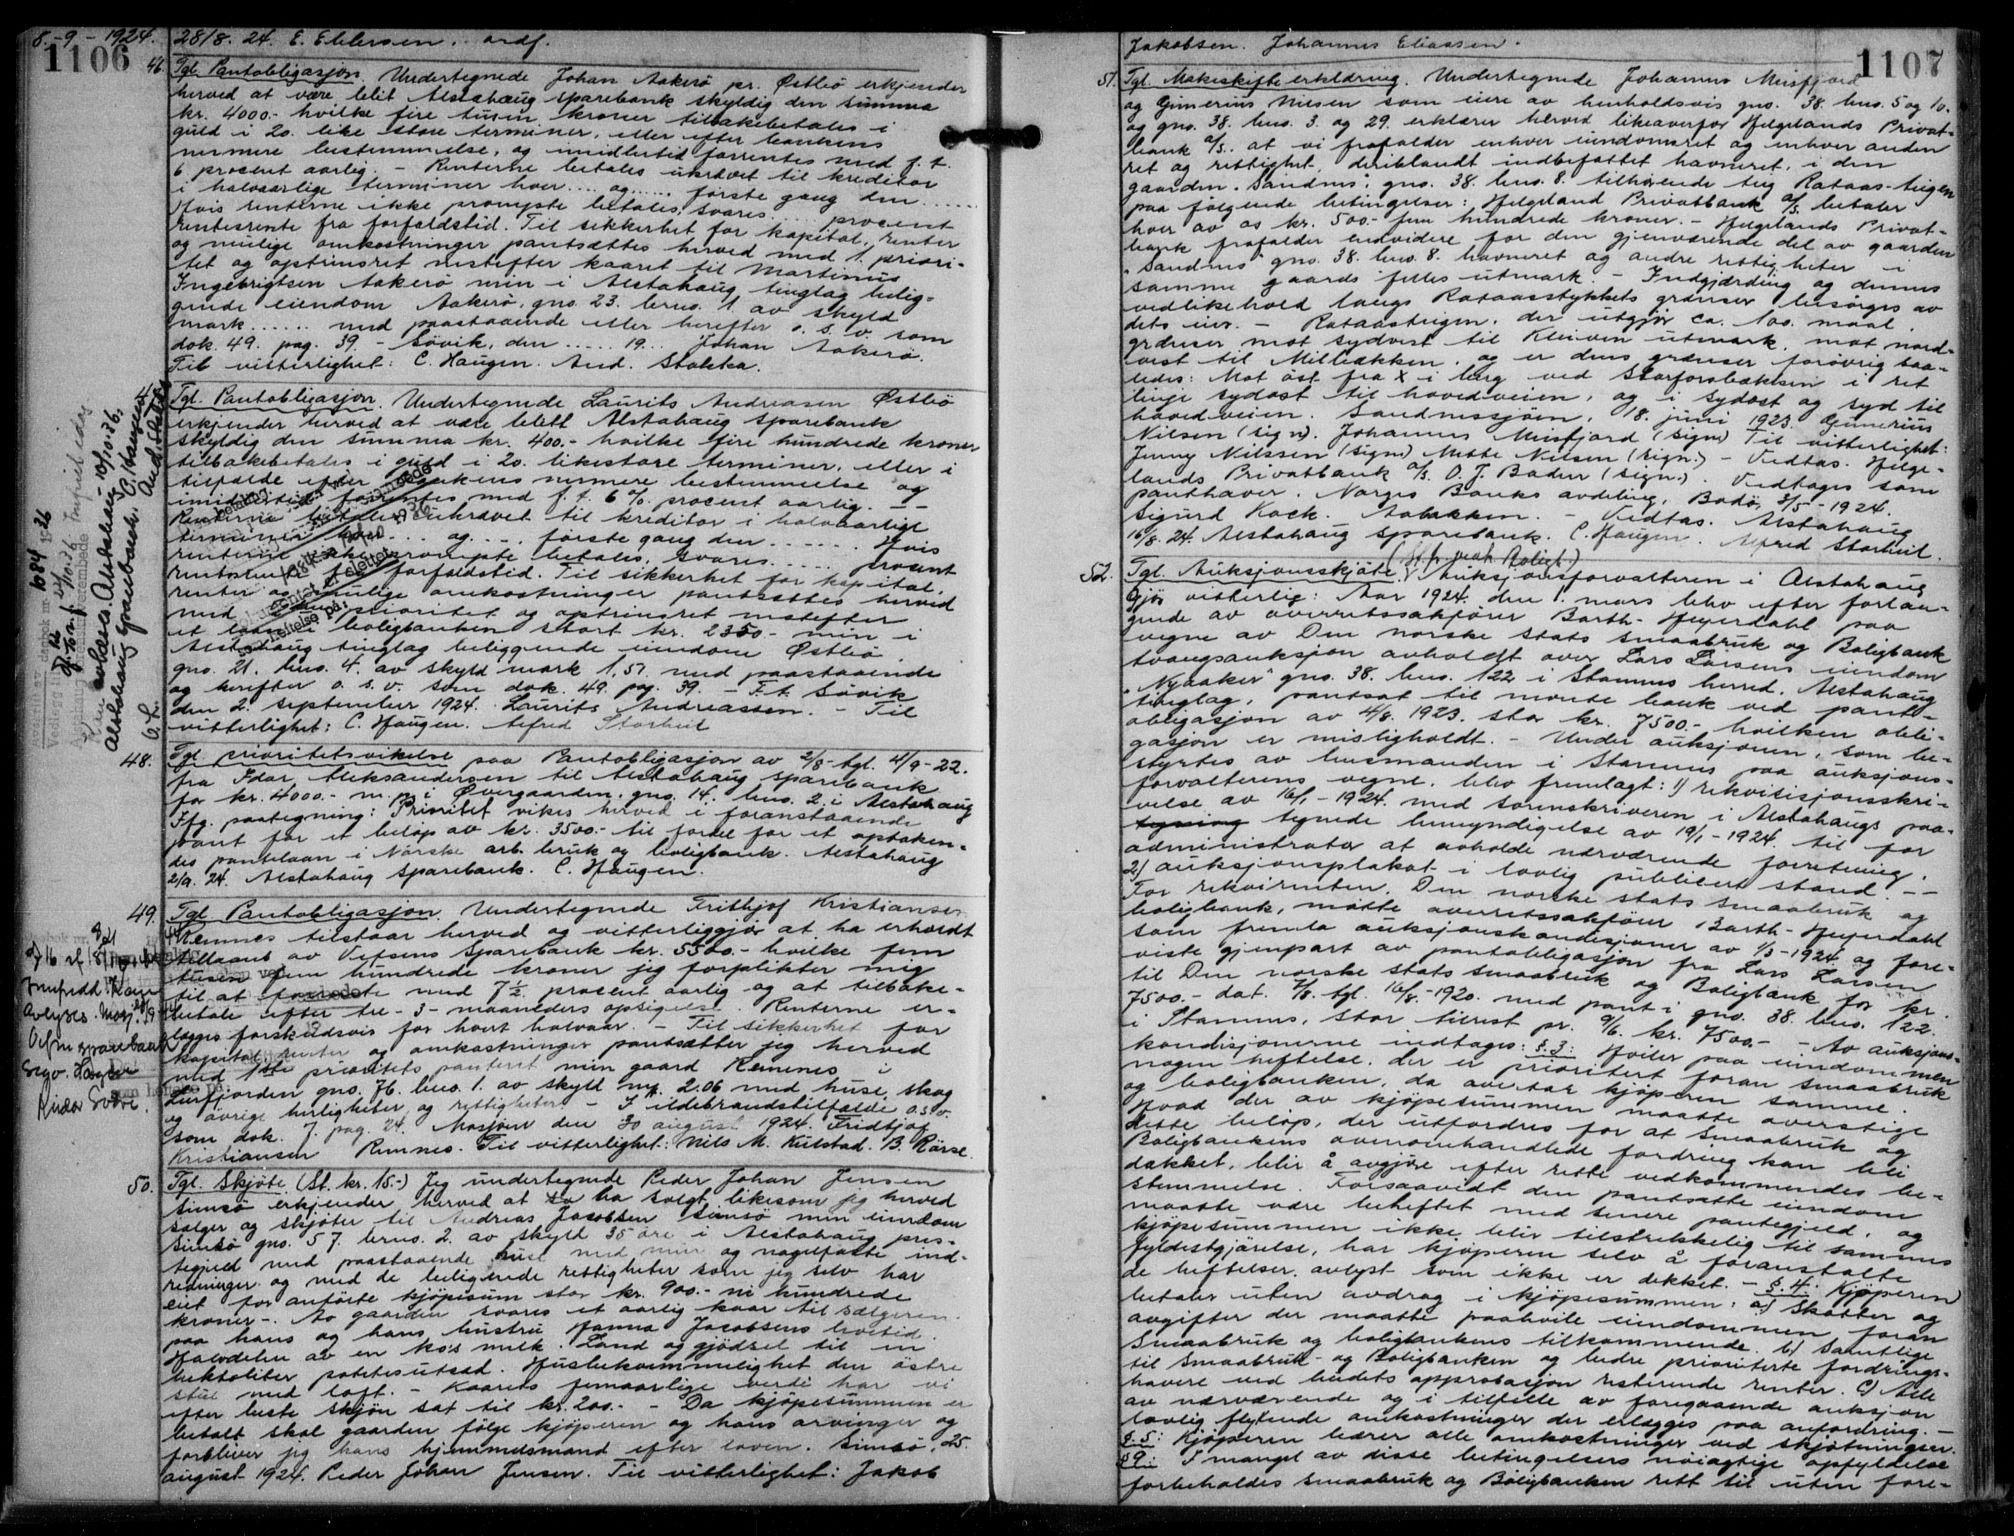 8.-9-1924.
1106
28/8. 24. E. Ellersen.. ordf.
46. Tgl. Pantobligasjon. Undertegnede Johan Aakerö pr. Østbö erkjender
herved at være blit Alstahaug sparebank skyldig den summa
kr. 4000.- hvilke fire tusen kroner tilbakebetales i
guld i 20. like store terminer, eller efter bankens
nærmere bestemmelse, og imidlertid forrentes med f. t.
6 procent aarlig. - Renterne betales ukrævet til kreditor
i halvaarlige terminer hver .... og ..... første gang den ......
Hvis renterne ikke prompte betales, svares ... procent
rentesrente fra forfaldstid. Til sikkerhet for kapital, renter
og mulige omkostninger pantsættes herved med 1. priori-
tet og optrinsret nestefter kaaret til Martinus
Ingebrigtsen Aakerö min i Alstahaug tinglag belig-
gende eiendom Aakerö, gno. 23. brno. 1. av skyld
mark ...... med paastaaende eller herefter o. s. v. som
dok. 49. pag. 39 - Søvik, den ..... 19... Johan Aakerö.
Til vitterlighet: C. Haugen. And. Stokka.
47. Tgl. Pantobligasjon. Undertegnede Laurits Andreasen Østbö
erkjender herved at være blitt Alstahaug sparebank
skyldig den summa kr. 400.- hvilke fire hundrede kroner
tilbakebetales i guld i 20. likestore terminer, eller i
tilfælde efter bankens nærmere bestemmelse og
imidlertid forrentes med f. t. 6 % procent aarlig. - -
Renterne betales ukrævet til kreditor i halvaarlige
terminer hver ... og ..., første gang den ...... Hvis
renterne ikke prompte betales, svares ..... procent
rentesrente fra forfaldstid. Til sikkerhet for kapital,
renter og mulige omkostninger pantsættes herved
med prioritet og optrinsret nestefter
et laan i boligbanken stort kr. 2350.- min i
Alstahaug tinglag beliggende eiendom Østbö
gno. 21. brno. 4. av skyld mark 1,51 med paastaaende
og herefter o. s. v. som dok. 49. pag. 39. - F. t. Søvik
den 2. september 1924. Laurits Andreassen. - Til
vitterlighet: C. Haugen. Alfred Storheil
48. Tgl. prioritetsvikelse paa Pantobligasjon av 2/8- tgl. 4/9-22.
fra Idar Aleksandersen til Alstahaug sparebank
for kr. 4000.- m. p. i Øvergaarden, gno. 14. brno. 2. i Alstahaug
Ifg. paategning: Prioritet vikes herved i foranstaaende
pant for et beløp av kr. 3500.- til fordel for et optaken-
des pantelaan i Norske arb. bruk og boligbank. Alstahaug
2/9. 24. Alstahaug Sparebank. C. Haugen.
49. Tgl. Pantobligasjon. Undertegnede Frithjof Kristiansen
Remnes tilstaar herved og vitterliggjør at ha erholdt
tillaans av Vefsens Sparebank kr. 5500.- hvilke fem
tusen fem hundrede kroner jeg forplikter meg
til at forrente med 7½ procent aarlig og at tilbake-
betale efter tre - 3 - maaneders opsigelse. Renterne er-
lægges forskudsvis for hvert halvaar. - Til sikkerhet for
kapital, renter og omkostninger pantsætter jeg herved
med 1ste prioritets panteret min gaard Remnes i
Leirfjorden gno. 76. brno. 1. av skyld mrk. 2.06 med huse, skog
og øvrige herligheter og rettigheter. - I ildebrandstilfælde o.s.v.
som dok. 7. pag. 24. Mosjøen den 30 august 1924. Fridtjof
Kristiansen Remnes. Til vitterlighet: Nils M. Kulstad. B. Rørse.
50. Tgl. Skjöte (St. kr. 15.-) Jeg undertegnede Peder Johan Jensen
Simsö erkjender herved at ha solgt, likesom jeg herved
sælger og skjöter til Andreas Jacobsen Simsö min eiendom
Simsö gno. 57. brno. 2. av skyld 35 öre i Alstahaug pres-
tegjeld med paastaaende huse med mur og nagelfaste ind-
redninger og med de beliggende rettigheter som jeg selv har
eiet for anförte kjöpesum stor kr. 900.- ni hundrede
kroner -. Av gaarden svares et aarlig kaar til sælgeren
paa hans og hans hustru Hanna Jacobsens levetid.
Halvdelen av en ko's melk. Land og gjödsel til en
hektoliter potetesutsæd. Husbekvemmelighet den östre
stue med loft. - Kaarets femaarlige verdi har vi
efter beste skjön sat til kr. 200.- - Da kjöpesummen er
betalt skal gaarden fölge kjöperen og hans arvinger og
forbliver jeg hans hjemmelsmand efter loven. Simsö, 25.
august 1924. Peder Johan Jensen. Til vitterlighet: Jakob
1107
Jakobsen. Johannes Eliassen.
51. Tgl. Makeskifteerklæring. Undertegnede Johannes Meisfjord
og Gunerius Nilsen som eiere av henholdsvis gno. 38. brno. 5 og 10.
og gno. 38. brno. 3. og 29. erklærer herved likeoverfor Helgelands Privat-
bank a/s. at vi frafalder enhver eiendomsret og enhver anden
ret og rettighet, deriblandt indbefattet havneret, i den
gaarden "Sandnes", gno. 38. brno. 8. tilhørende teig Rataas-teigen
paa følgende betingelser: Helgeland Privatbank a/s. betaler
hver av os kr. 500.- fem hundrede kroner. - Helgelands Privat-
bank frafalder endvidere for den gjenværende del av gaarden
"Sandnes" gno. 38. brno. 8. havneret og andre rettigheter i
samme gaards felles utmark. - Indgjærding og dennes
vedlikehold langs Rataasstykkets grænser besørges av
dets eier. - Rataasteigen, der utgjör ca. 100. maal,
grænser mot sydvest til Kleiven utmark, mot nord-
vest til Millebækken, og er dens grænser forøvrig saa-
ledes: Mot öst fra X i berg ved Storforsbækken i ret
linje sydöst til hovedveien, og i sydöst og syd til
hovedveien. Sandnessjøen, 18. juni 1923. Gunerius
Nilsen (sign). Johannes Meisfjord (sign) Til vitterlighet:
Jenny Nilssen (sign) Mette Nilsen (sign.) - Vedtas. Helge-
lands Privatbank a/s. O. J. Baden (sign.). Vedtages som
panthaver. Norges Banks avdeling, Bodø, 3/5 - 1924.
Sigurd Koch. Aabakken. - Vedtas. Alstahaug
16/8. 24. Alstahaug sparebank. C. Haugen. Alfred Storheil.
52. Tgl. Auksjonsskjöte. Auksjonsforvalteren i Alstahaug
Gjör vitterlig: Aar 1924. den 1. mars blev efter forlan-
gende av overretssakfører Barth-Heyerdahl paa
vegne av Den norske stats smaabruk og Boligbank
tvangsauksjon avholdt over Lars Larsens eiendom
"Nyaaker" gno. 38. brno. 122 i Stamnes herred, Alstahaug
tinglag, pantsat til nævnte bank ved pant-
obligasjon av 4/8. 1923. stor kr. 7500.- hvilken obli-
gasjon er misligholdt. - Under auksjonen, som be-
styrtes av lensmanden i Stamnes paa auksjons-
forvalterens vegne, blev fremlagt: 1) rekvisisjonsskri-
velse av 16/1 - 1924. med sorenskriveren i Alstahaugs paa-
tegning tegnede bemyndigelse av 19/1 - 1924. til for
administrator at avholde nærværende forretning.
2) auksjonsplakat i lovlig publicert stand - -
For rekvirenten, Den norske stats smaabruk og
boligbank, møtte overretssakfører Barth-Heyerdahl
som fremla auksjonskondisjoner av 1/3 - 1924 og fore-
viste gjenpart av pantobligasjon fra Lars Larsen
til Den norske stats smaabruk og Boligbank for kr.
7500.- dat. 7/8. tgl. 16/8.-1920. med pant i gno. 38. brno. 122.
i Stamnes, stor tilrest pr. 9/6. kr. 7500.- - Av auksjons-
kondisjonerne indtages: §.3: Hviler paa eiendommen
nogen heftelse, der er prioritert foran smaabruk
og boligbanken, da overtar kjøperen samme.
Hvad der av kjøpesummen maatte overstige
dette beløp, der utfordres for at Smaabruk og
Boligbankens ovenomhandlede fordring kan bli
dækket, blir å avgjøre efter rette vedkommendes be-
stemmelse. Forsaavidt den pantsatte eiendom
maatte være beheftet med senere pantegjeld, og
kjøpesummen ikke blir tilstrekkelig til sammes
fyldestgjørelse, har kjøperen selv å foranstalte
de heftelser avlyst som ikke er dekket. - §.4. Kjøperen
betaler uten avdrag i kjøpesummen: a) Skatter og
avgifter der maatte paahvile eiendommen foran
Smaabruk og boligbankens tilkommende. b) Samtlige
til Smaabruk- og Boligbanken og bedre prioriterte fordrings-
havere ved budets approbasjon resterende renter. c) Alle
av nærværende og i tilfelle av foregaaende auksjon
lovlig flytende omkostninger der erlægges paa anfordring. -
§.5: Kjøperen bærer alle omkostninger ved skjøtningen.
§9.: I mangel av disse betingelsers nøiagtige opfyldelse
forbeholdes smaabruk og Boligbanken rett til uten fore-